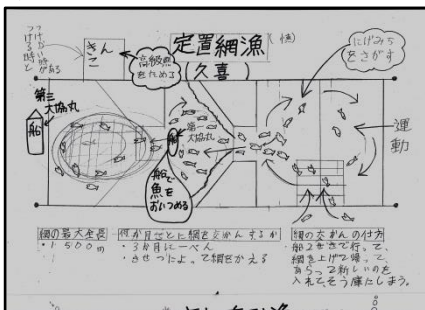 定置網漁
(久喜)
きん
こ
高級魚
をためる
にげみち
をさがす
第三
大協丸
船
第一
大協丸
船
運動
船で
魚を
おいつめる
網の最大全長
・1500m
何か月ごとに網を交かんするか
・3か月に一ぺん
・きせつによって網をかえる
網の交かんの仕方
・船2せきで行って、
網を上げて帰って、
あらって新しいのを
入れてそう庫にしまう。